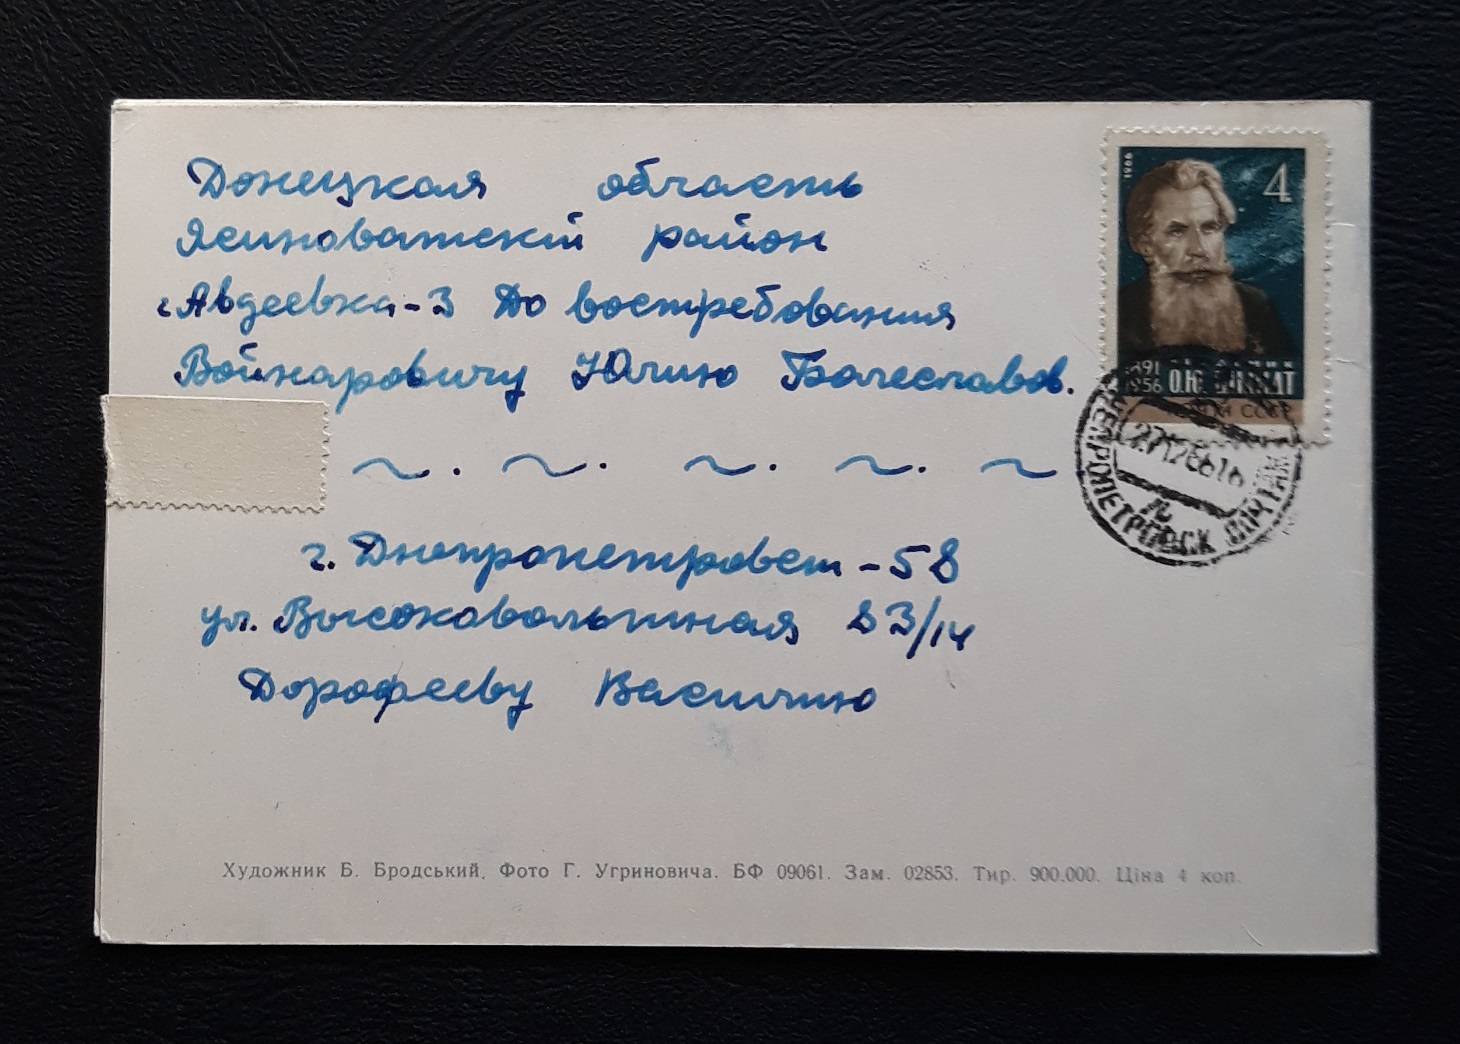 Донецкая область
Ясиноватский район
г. Авдеевка-3 До востребования
Войнаровичу Юлию Болеславов.
г. Днепропетровск-58
ул. Высоковольтная 23/14
Дорофееву Василию
1966
4
1891
1956 О.Ю. ШМИДТ
ПОЧТА СССР
ДНЕПРОПЕТРОВСК ПОЧТАМТ
27126616
Художник Б. Бродський. Фото Г. Угриновича. БФ 09061. Зам. 02853. Тир. 900.000. Ціна 4 коп.